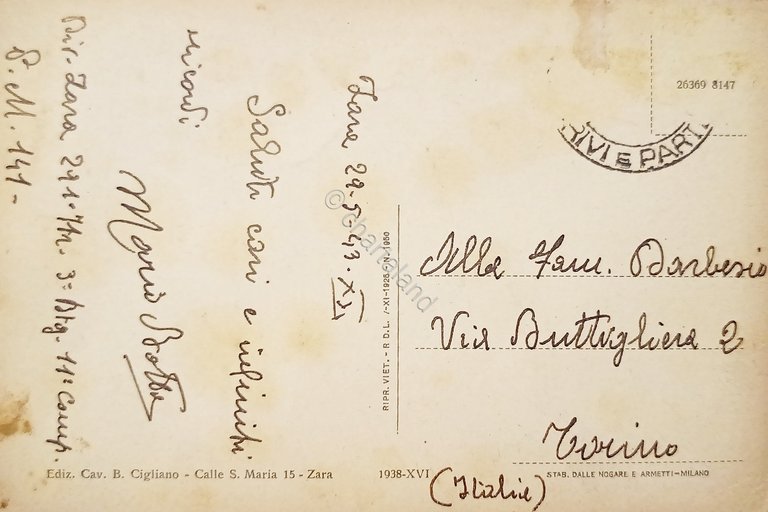 Zara 29-5-43-XXI
Saluti cari e infiniti
ricordi
Mario Botta
Dir. Zara 291° Ftr. 3° Btg. 11° Comp.
P. M. 141 -
Alla Fam. Barberio
Via Buttigliera 2
Torino
(Italia)
26369 8147
RIVI E PART
RIPR. VIET. - R D.L. 7-XI-1925, N. 1950
Ediz. Cav. B. Cigliano - Calle S. Maria 15 - Zara
1938-XVI
STAB. DALLE NOGARE E ARMETTI - MILANO
© chartaland